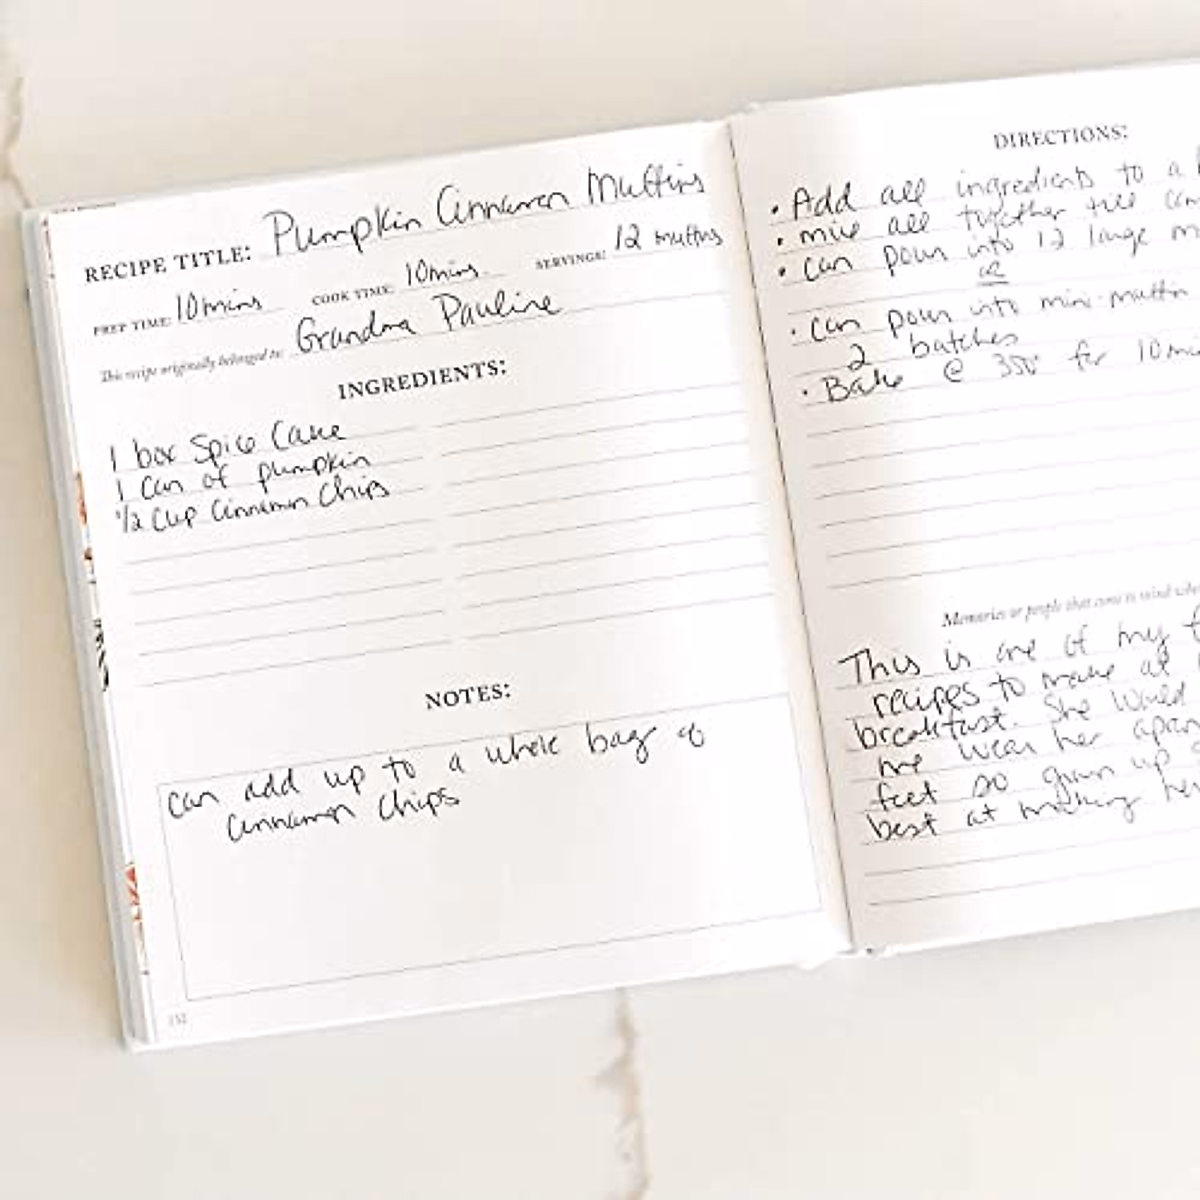 RECIPE TITLE: Pumpkin Cinnamon Muffins
PREP TIME: 10 mins COOK TIME: 10 mins SERVINGS: 12 muffins
This recipe originally belonged to: Grandma Pauline
INGREDIENTS:
1 box Spice Cake
1 can of pumpkin
1/2 cup Cinnamon Chips
NOTES:
can add up to a whole bag of
cinnamon chips
152
DIRECTIONS:
• Add all ingredients to a
• mix all together till
• can pour into 12 large
or
• can pour into mini-muffin
2 batches
• Bake @ 350° for 10
Memories or people that come to mind
This is one of my
recipes to make at
breakfast. She would
me wear her apron
feet so grown up
best at making her